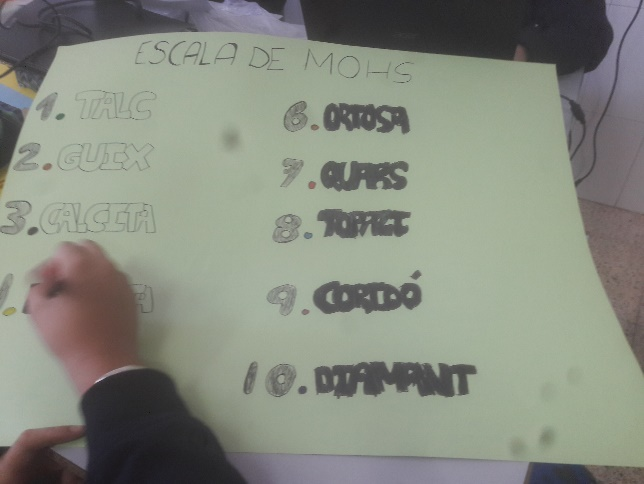 ESCALA DE MOHS
1. TALC
2. GUIX
3. CALCITA
6. ORTOSA
7. QUARS
8. TOPAZI
9. CORIDÓ
10. DIAMANT